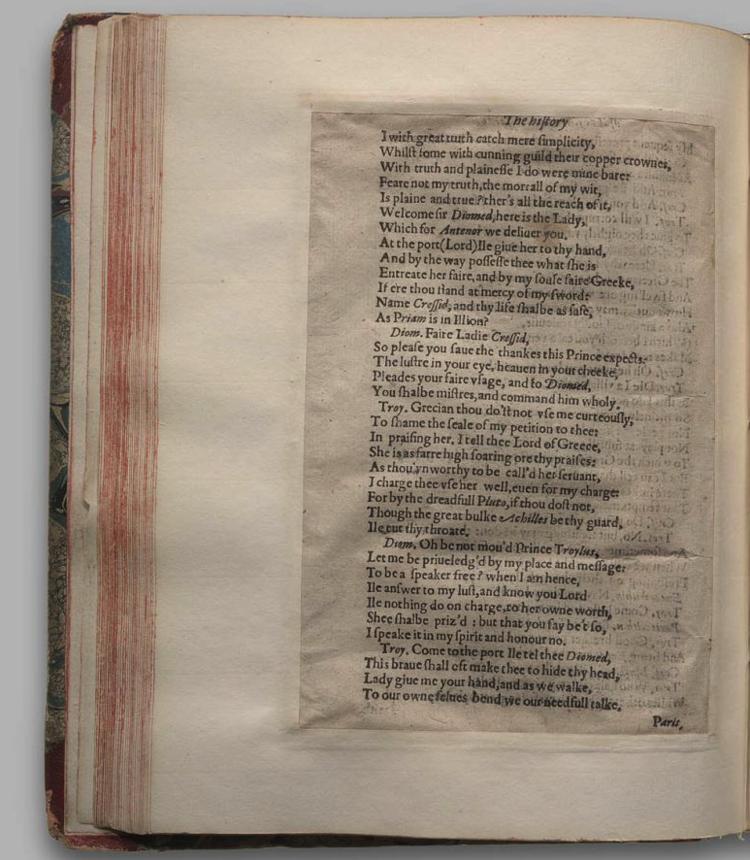 The history
I with great truth catch mere simplicity,
Whilſt ſome with cunning guild their copper crownes,
With truth and plaineſſe I do were mine bare:
Feare not my truth,the morrall of my wit,
Is plaine and true?ther's all the reach of it,
Welcome ſir Diomed,here is the Lady,
Which for Antenor we deliuer you.
At the port(Lord)Ile giue her to thy hand,
And by the way poſſeſſe thee what ſhe is
Entreate her faire,and by my ſoule faire Greeke,
If ere thou ſtand at mercy of my ſword:
Name Creſſid,and thy life ſhalbe as ſafe,
As Priam is in Illion?
Diom. Faire Ladie Creſſid,
So pleaſe you ſaue the thankes this Prince expects:
The luſtre in your eye, heauen in your cheeke,
Pleades your faire vſage, and to Diomed,
You ſhalbe miſtres,and command him wholy.
Troy. Grecian thou do'ſt not vſe me curteouſly,
To ſhame the ſeale of my petition to thee:
In praiſing her. I tell thee Lord of Greece,
She is as farre high ſoaring ore thy praiſes:
As thou vnworthy to be call'd her ſeruant,
I charge thee vſe her well,euen for my charge:
For by the dreadfull Pluto,if thou doſt not,
Though the great bulke Achilles be thy guard,
Ile cut thy throate.
Diom. Oh be not mou'd Prince Troylus,
Let me be priueledg'd by my place and meſſage:
To be a ſpeaker free? when I am hence,
Ile anſwer to my luſt,and know you Lord
Ile nothing do on charge,to her owne worth,
Shee ſhalbe priz'd : but that you ſay be't ſo,
I ſpeake it in my ſpirit and honour no.
Troy. Come to the port Ile tel thee Diomed,
This braue ſhall oft make thee to hide thy head,
Lady giue me your hand,and as we walke,
To our owne ſelues bend we our needfull talke.
Paris,